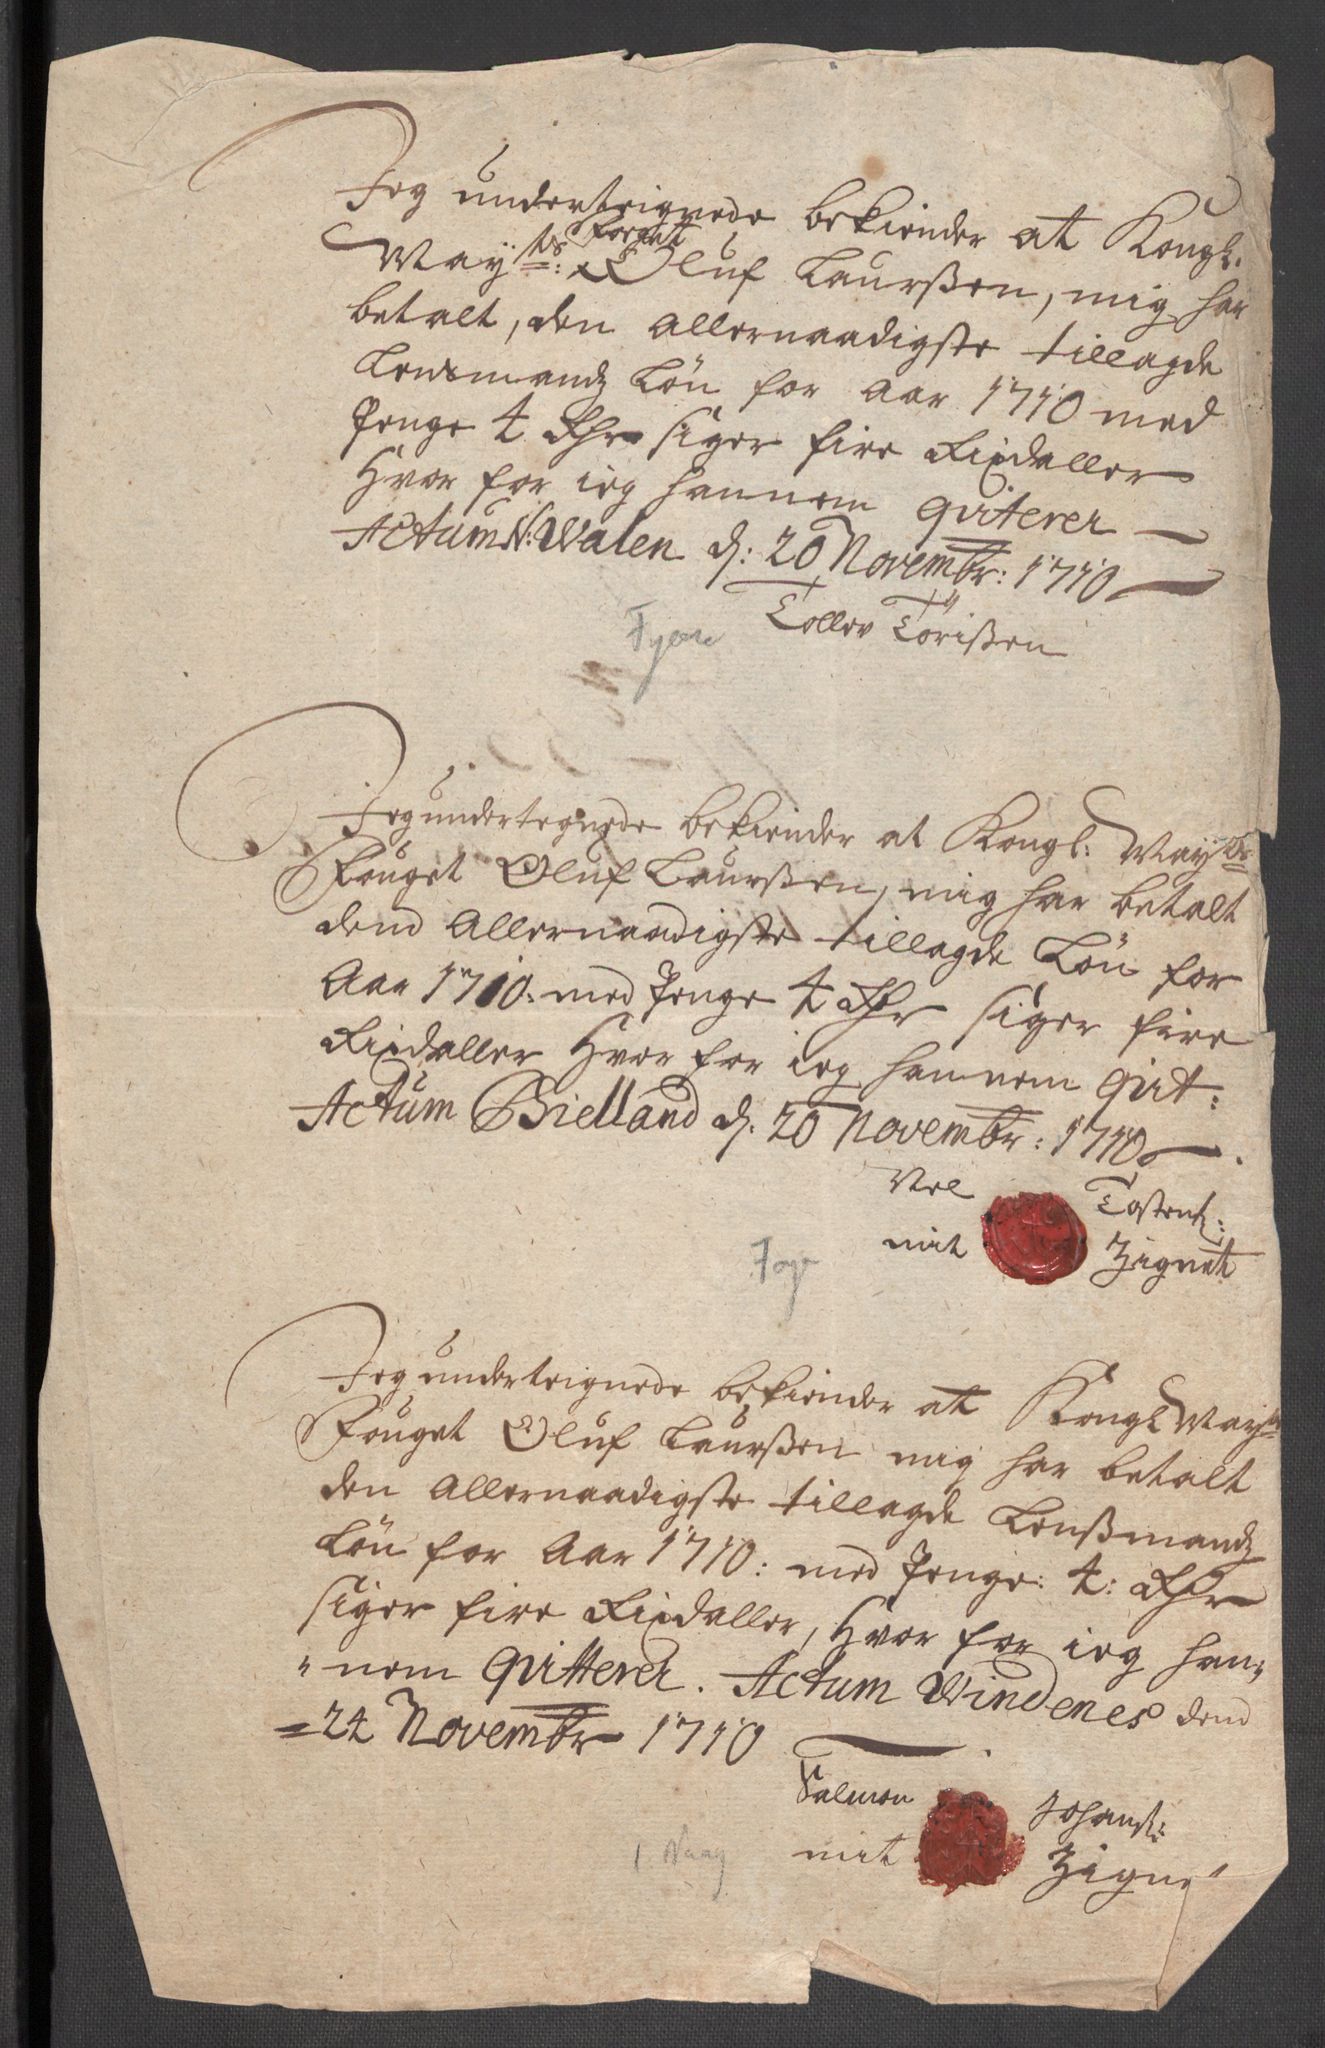 Jeg underteignede bekiender at Kongl.
May:ts Foeget Oluf Laurßen, mig har
betalt, den Allernaadigste tillagde
Lensmandz Lön for Aar 1710 med
Penge 4 Rdr siger fire Rixdaller
Hvor for ieg hannem qviterer
Actum N: Walen d: 20 Novembr: 1710
Tollev Törißen
Fjære
Jeg undertegnede bekiender at Kongl: May:ts
Fouget Oluf Laurßen, mig har betalt
dend Allernaadigste tillagde Lön for
Aar 1710: med Penge 4 Rdr siger fire
Rixdaller Hvor for ieg hannem qvit:
Actum Bielland d. 20 Novembr: 1710
Nel Tostensß:
mit Zignet
Jeg underteignede bekiender at Kongl May:ts
Fouget Oluf Laurßen mig har betalt
den Allernaadigste tillagde Lenßmandz
Lön for Aar 1710: med Penge: 4: Rdr
siger fire Rixdaller, Hvor for ieg han-
nem qvitterer. Actum Windenes dend
24 Novembr 1710
Salmon Johanß:
mit Zignet